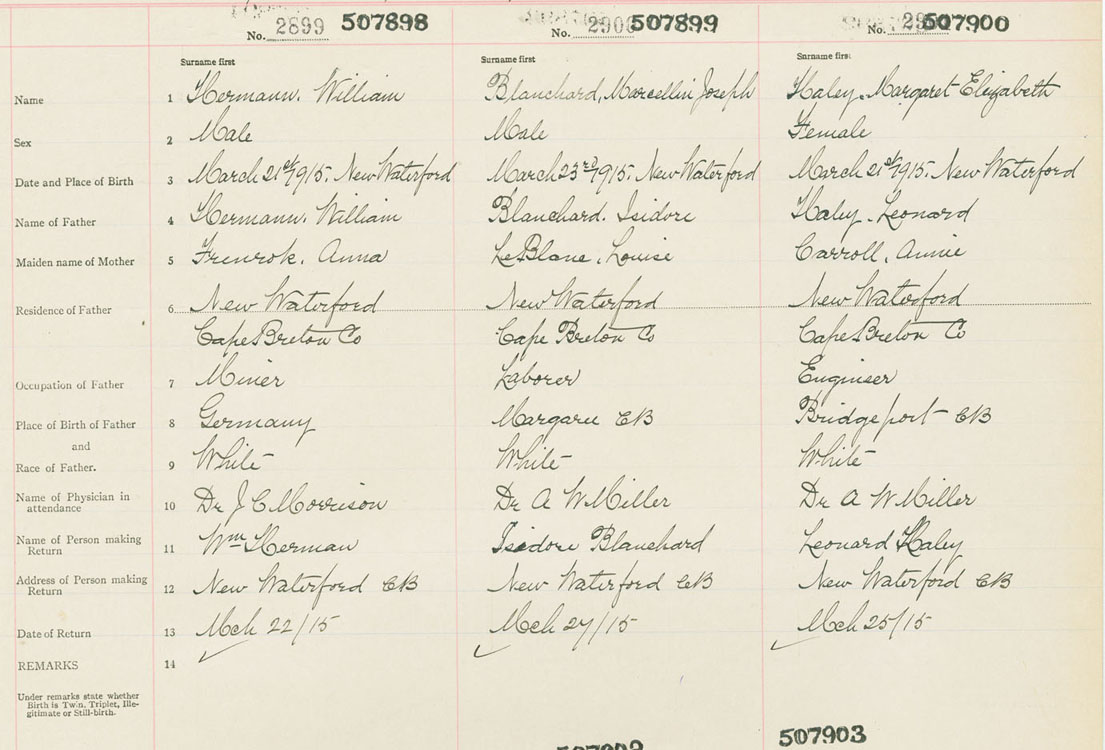 No. 2899 507898 No. 2900 507899 No. 507900
Surname first Surname first Surname first
Name 1 Hermann. William Blanchard, Marcellin Joseph Haley. Margaret Elizabeth
Sex 2 Male Male Female
Date and Place of Birth 3 March 21st/1915. New Waterford March 23rd/1915. New Waterford March 21st/1915. New Waterford
Name of Father 4 Hermann. William Blanchard. Isidore Haley. Leonard
Maiden name of Mother 5 Frenrok. Anna LeBlanc, Louise Carroll, Annie
Residence of Father 6 New Waterford New Waterford New Waterford
Cape Breton Co Cape Breton Co Cape Breton Co
Occupation of Father 7 Miner Laborer Engineer
Place of Birth of Father 8 Germany Margaree CB Bridgeport CB
and
Race of Father. 9 White White White
Name of Physician in attendance 10 Dr J C Morrison Dr A W Miller Dr A W Miller
Name of Person making Return 11 Wm Herman Isidore Blanchard Leonard Haley
Address of Person making Return 12 New Waterford CB New Waterford CB New Waterford CB
Date of Return 13 Mch 22/15 Mch 27/15 Mch 25/15
REMARKS 14
Under remarks state whether
Birth is Twin, Triplet, Ille-
gitimate or Still-birth.
507903